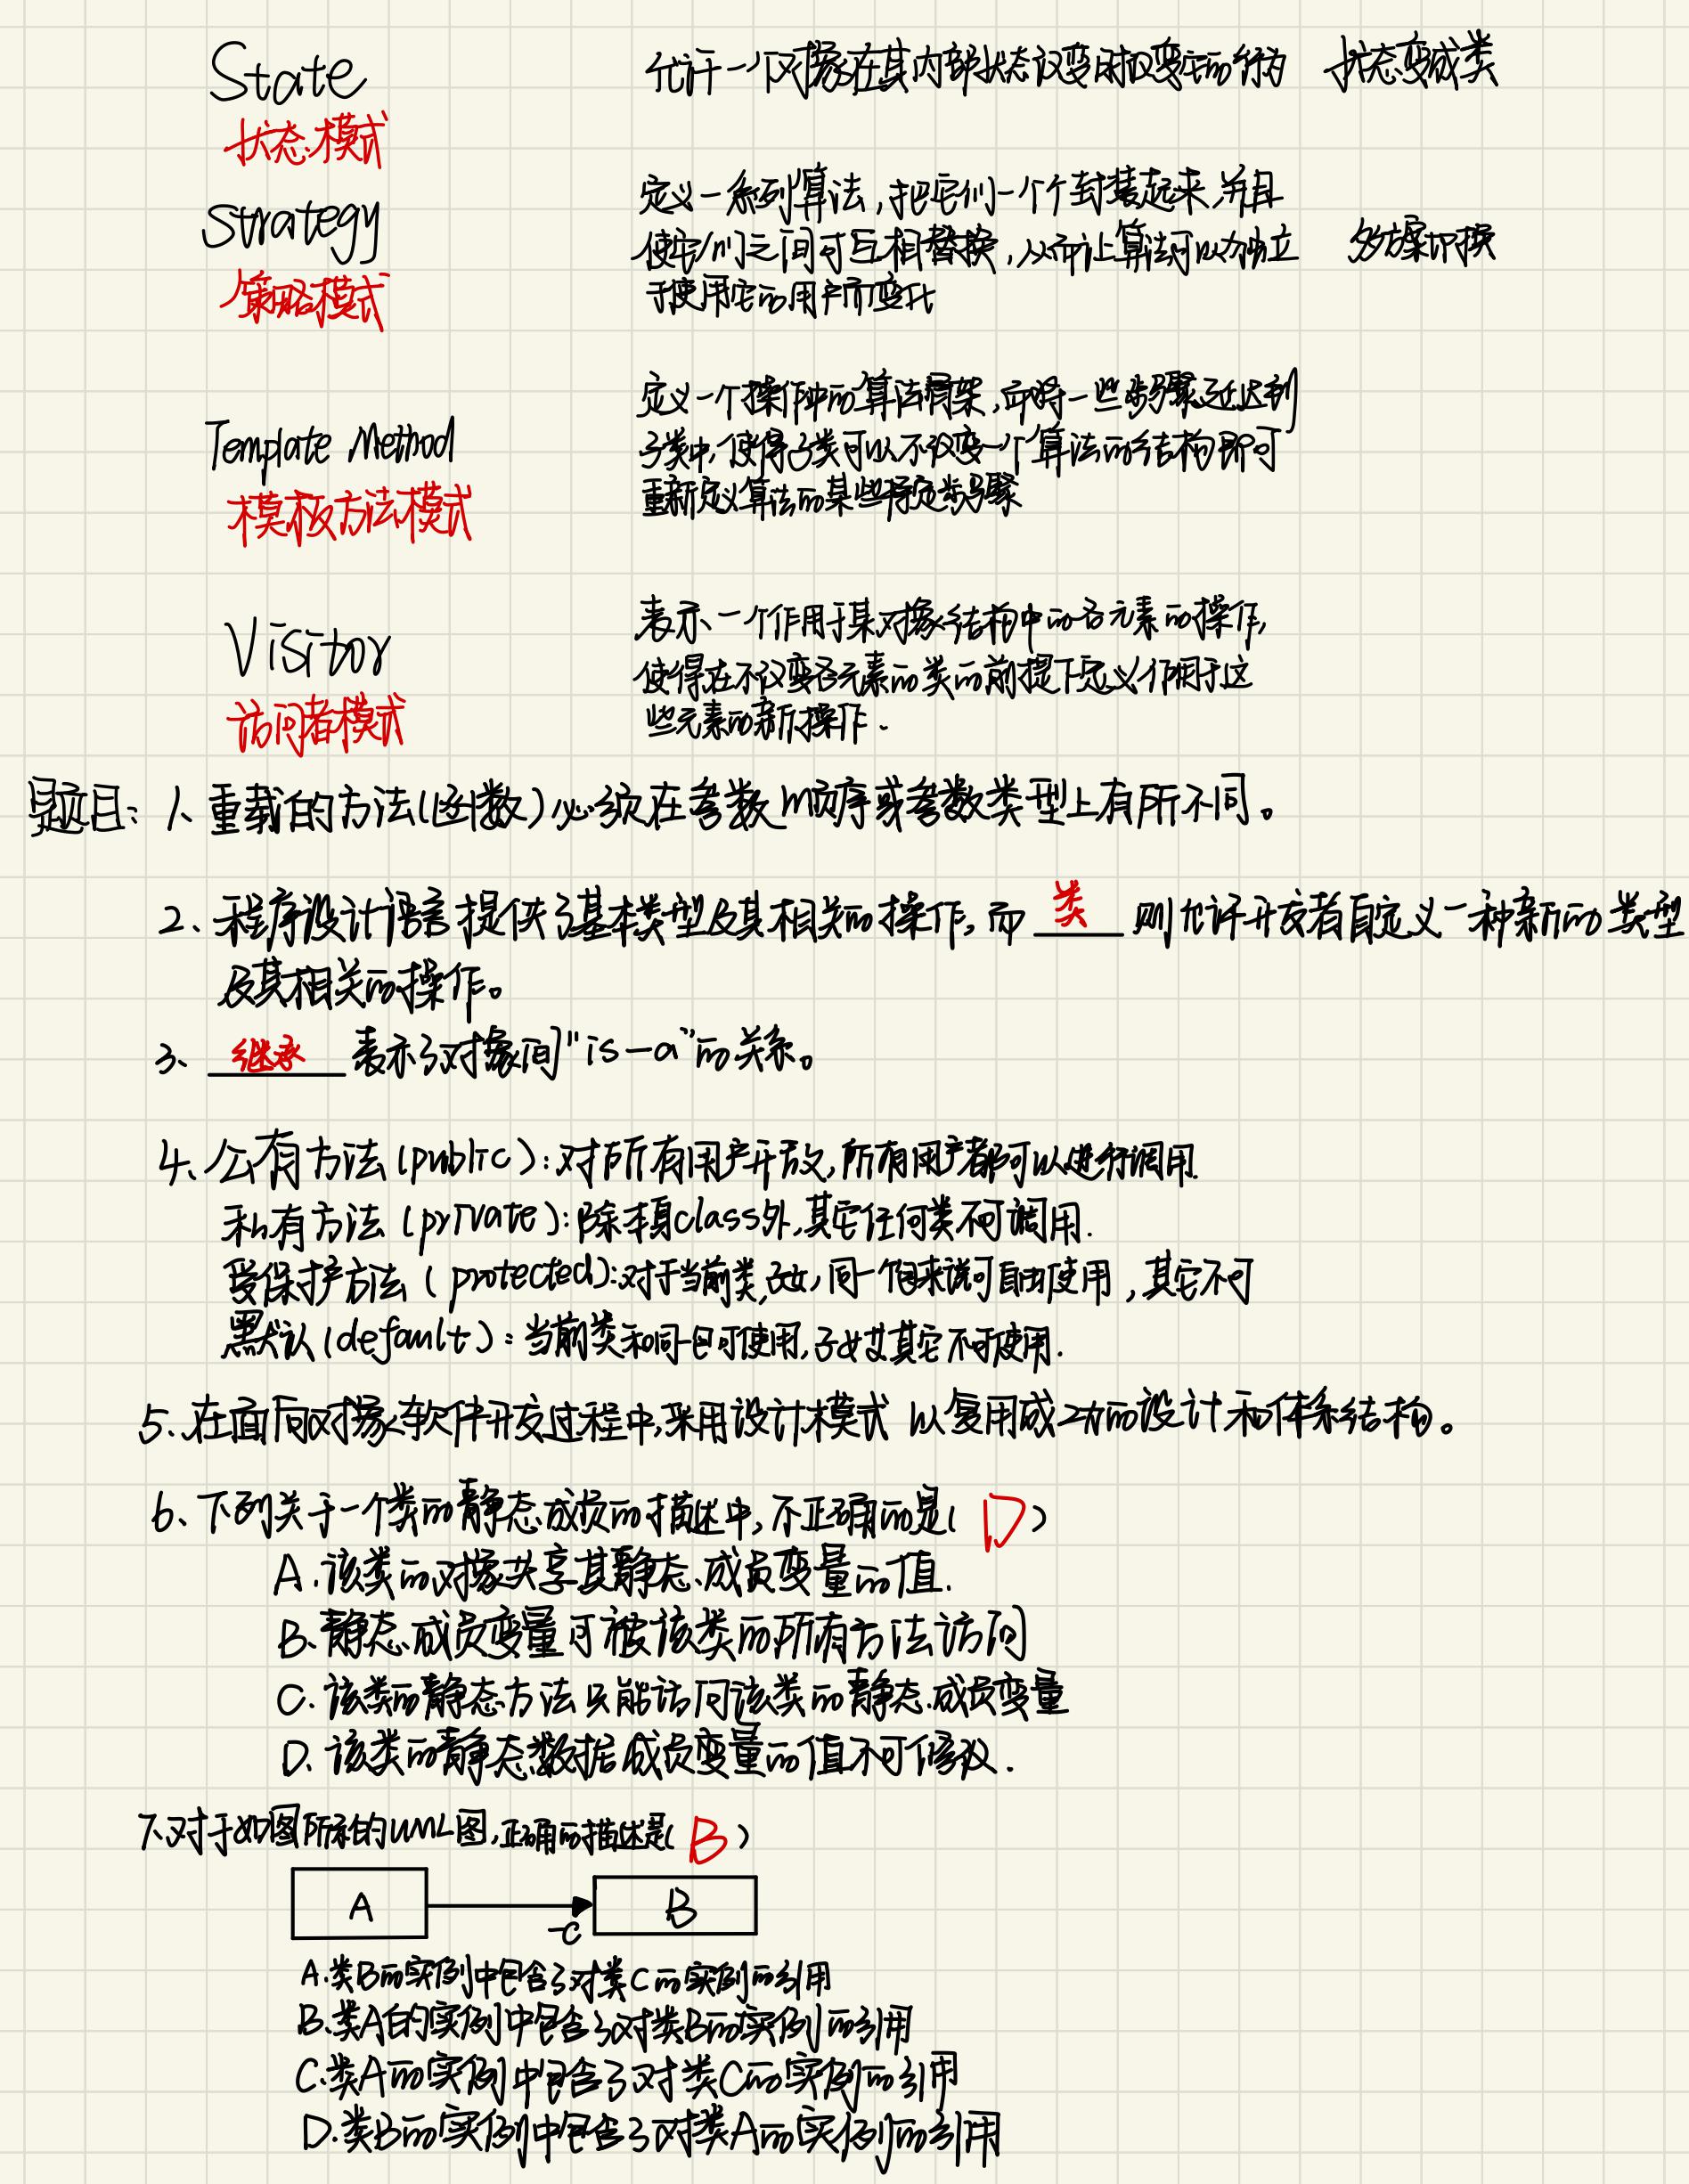 State
状态模式
允许一个对象在其内部状态改变时改变它的行为 状态变成类
Strategy
策略模式
定义一系列算法,把它们一个个封装起来,并且
使它们之间可互相替换,从而让算法可以独立 多方案切换
于使用它的用户而变化
Template Method
模板方法模式
定义一个操作中的算法骨架,而将一些步骤延迟到
子类中,使得子类可以不改变一个算法的结构即可
重新定义算法的某些特定步骤
Visitor
访问者模式
表示一个作用于某对象结构中的各元素的操作,
使得在不改变各元素的类的前提下定义作用于这
些元素的新操作.
题目:1、重载的方法(函数)必须在参数顺序或参数类型上有所不同。
2、程序设计语言提供了基本类型及其相关的操作,而 类 则允许开发者自定义一种新的类型
及其相关的操作。
3、 继承 表示了对象间"is-a"的关系。
4、公有方法(public):对所有用户开放,所有用户都可以进行调用.
私有方法(private):除本身class外,其它任何类不可调用.
受保护方法(protected):对于当前类,子女,同一个包来说可自由使用,其它不可
默认(default):当前类和同一包可使用,子女及其它不可使用.
5、在面向对象软件开发过程中,采用设计模式以复用成功的设计和体系结构。
6、下列关于一个类的静态成员的描述中,不正确的是( D )
A.该类的对象共享其静态成员变量的值.
B.静态成员变量可被该类的所有方法访问
C.该类的静态方法只能访问该类的静态成员变量
D.该类的静态数据成员变量的值不可修改.
7.对于如图所示的UML图,正确的描述是( B )
A
B
-c
A.类B的实例中包含了对类C的实例的引用
B.类A的实例中包含了对类B的实例的引用
C.类A的实例中包含了对类C的实例的引用
D.类B的实例中包含了对类A的实例的引用